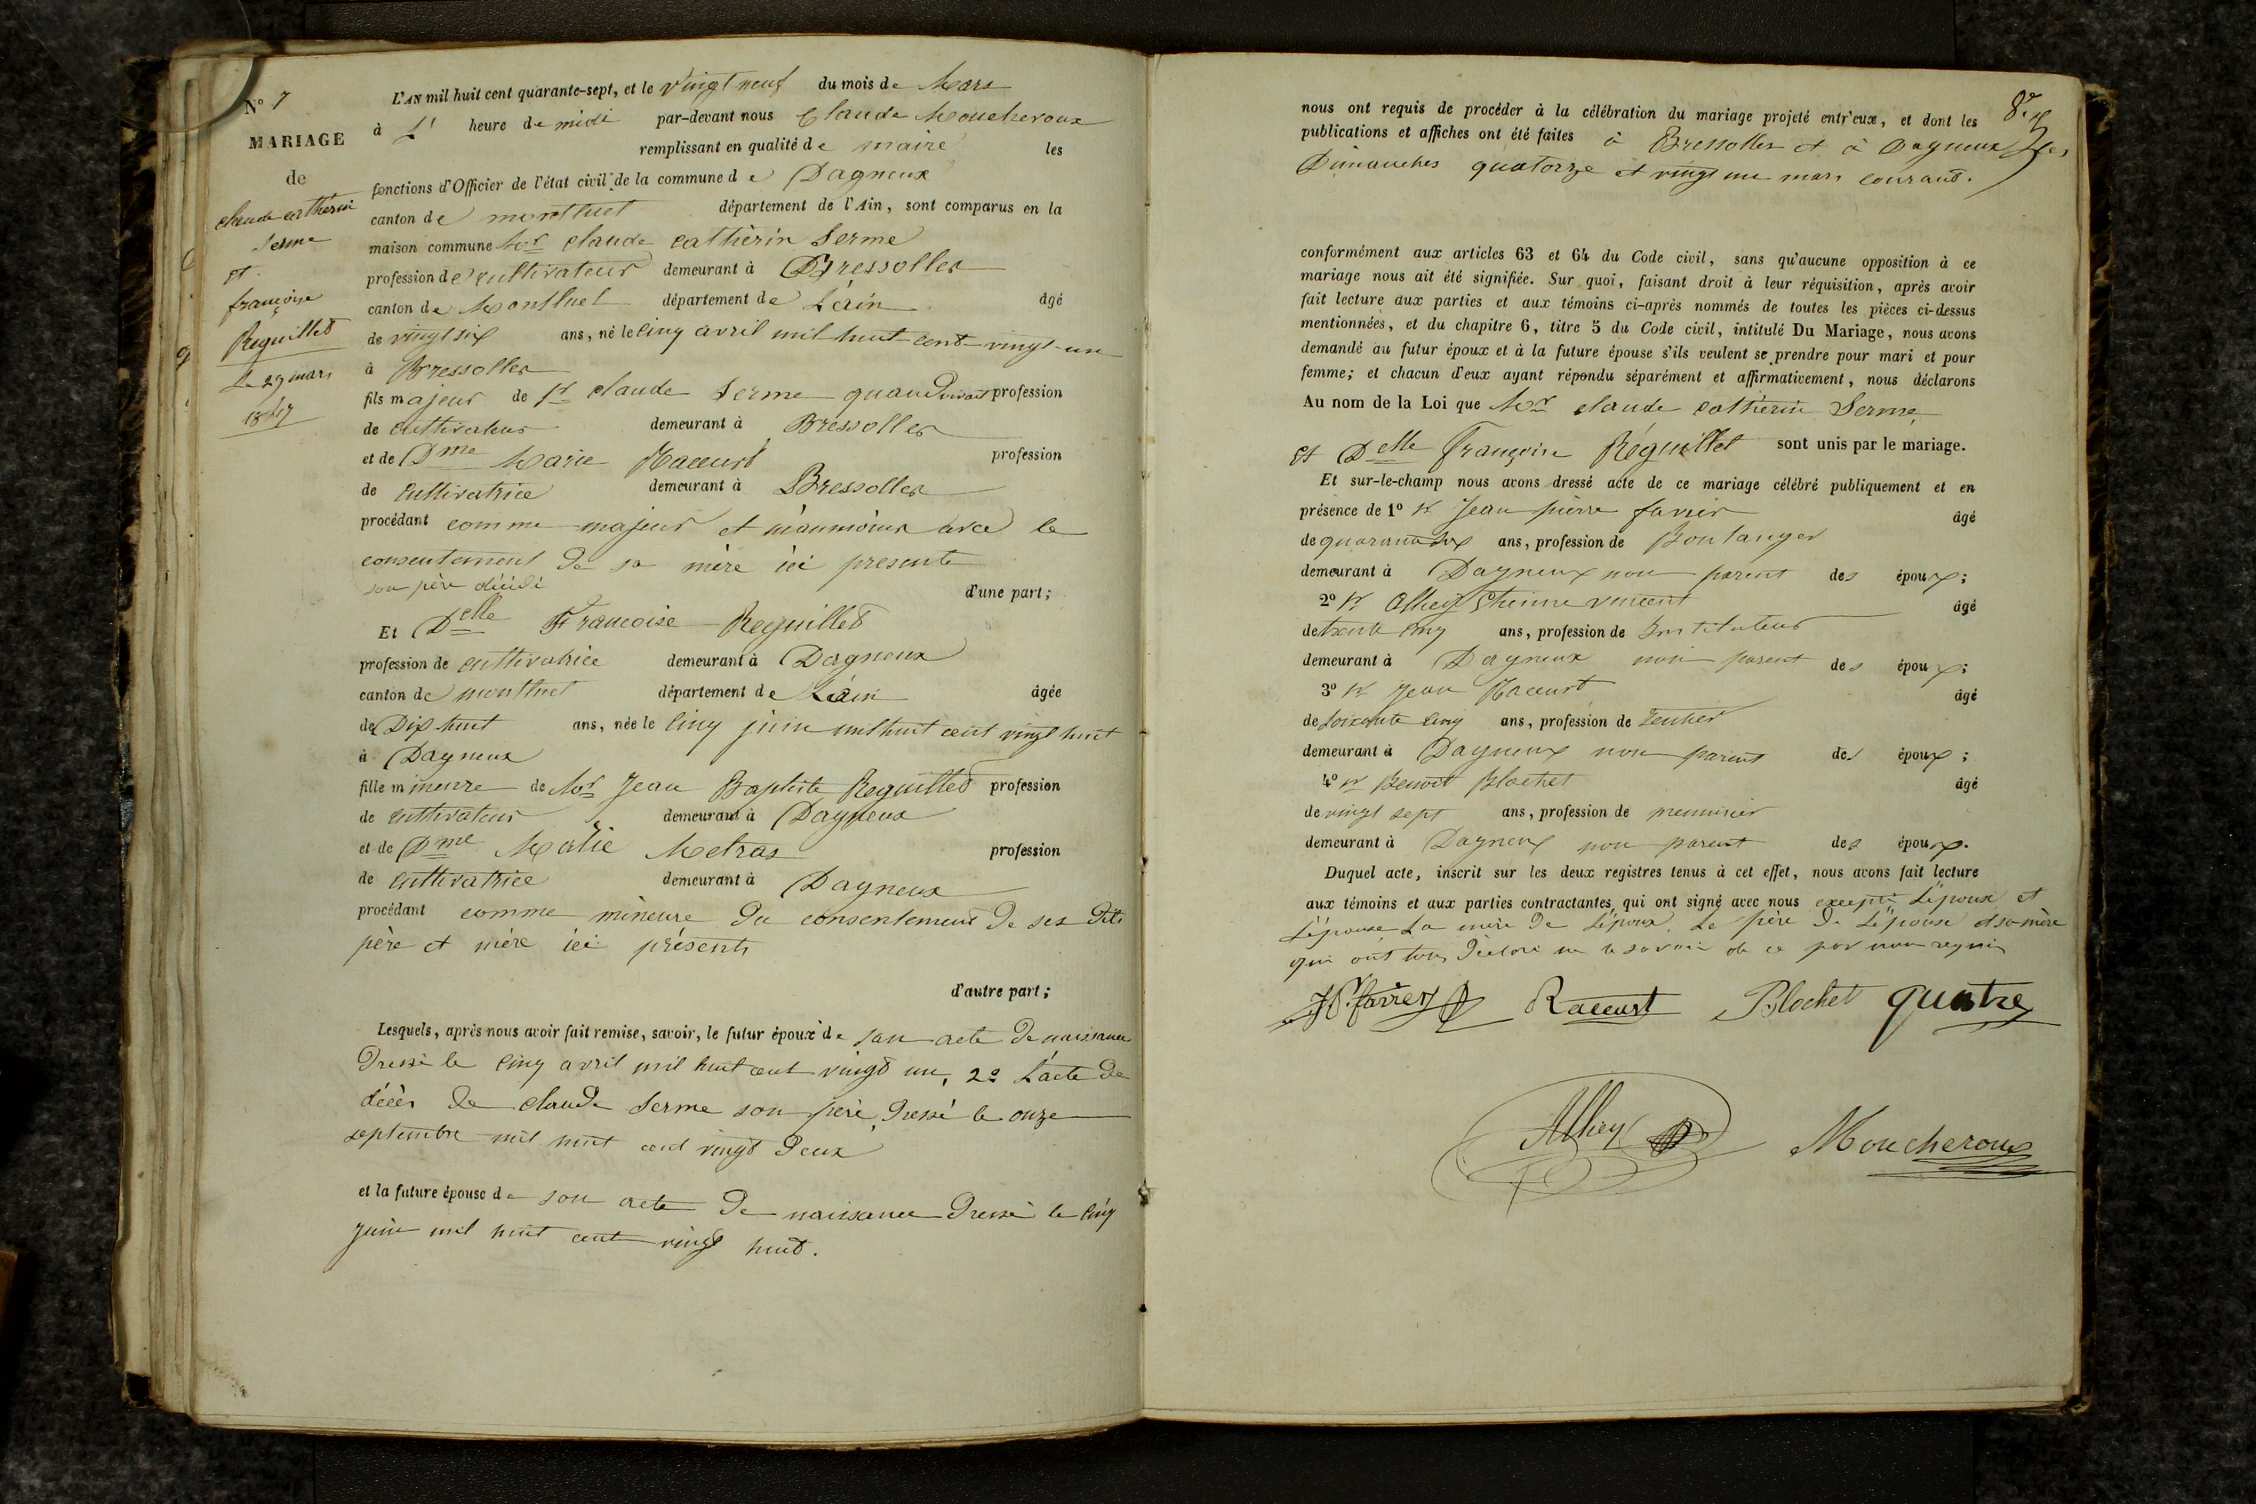 N° 7
MARIAGE
de
claude catherin
Serme
et
françoise
Reguillet
Le 29 mars
1847
L'AN mil huit cent quarante-sept, et le vingt neuf du mois de Mars
à heure de midi par-devant nous Claude Moucheroux
remplissant en qualité de maire les
fonctions d'Officier de l'état civil de la commune de Dagneux
canton de montluel département de l'Ain, sont comparus en la
maison commune Mr claude catherin Serme
profession de cultivateur demeurant à Bressolles
canton de Montluel département de L'ain âgé
de vingt six ans, né le cinq avril mil huit cent vingt un
à Bressolles
fils majeur de Sr claude Serme quand vivait profession
de cultivateur demeurant à Bressolles
et de Dme Marie Raccurt profession
de cultivatrice demeurant à Bressolles
procédant comme majeur et néanmoins avec le
consentement de sa mère ici presente
son père décédé
d'une part;
Et Delle Francoise Reguillet
profession de cultivatrice demeurant à Dagneux
canton de montluel département de L'ain âgée
de Dix huit ans, née le cinq juin mil huit cent vingt huit
à Dagneux
fille mineure de Mr Jean Baptiste Reguillet profession
de cultivateur demeurant à Dagneux
et de Dme Marie Metras profession
de cultivatrice demeurant à Dagneux
procédant comme mineure du consentement de ses dits
père et mère ici présents
d'autre part;
Lesquels, après nous avoir fait remise, savoir, le futur époux de son acte de naissance
dressé le cinq avril mil huit cent vingt un, 2° L'acte de
décès de claude Serme son père, dressé le onze
septembre mil huit cent vingt deux
et la future épouse de son acte de naissance dressé le cinq
juin mil huit cent vingt huit.
8e
nous ont requis de procéder à la célébration du mariage projeté entr'eux, et dont les
publications et affiches ont été faites à Bressolles et à Dagneux les
Dimanches quatorze et vingt un mars courant.
conformément aux articles 63 et 64 du Code civil, sans qu'aucune opposition à ce
mariage nous ait été signifiée. Sur quoi, faisant droit à leur réquisition, après avoir
fait lecture aux parties et aux témoins ci-après nommés de toutes les pièces ci-dessus
mentionnées, et du chapitre 6, titre 5 du Code civil, intitulé Du Mariage, nous avons
demandé au futur époux et à la future épouse s'ils veulent se prendre pour mari et pour
femme; et chacun d'eux ayant répondu séparément et affirmativement, nous déclarons
Au nom de la Loi que Mr claude catherin Serme
et Delle Françoise Réguillet sont unis par le mariage.
Et sur-le-champ nous avons dressé acte de ce mariage célébré publiquement et en
présence de 1° Sr Jean pierre favier âgé
de quarante six ans, profession de Boulanger
demeurant à Dagneux non parent des époux;
2° Sr Alhey Etienne vincent âgé
de trente cinq ans, profession de Instituteur
demeurant à Dagneux non parent des époux;
3° Sr Jean Raccurt âgé
de soixante cinq ans, profession de rentier
demeurant à Dagneux non parent des époux;
4° Sr Benoit Blochet âgé
de vingt sept ans, profession de menuisier
demeurant à Dagneux non parent des époux.
Duquel acte, inscrit sur les deux registres tenus à cet effet, nous avons fait lecture
aux témoins et aux parties contractantes qui ont signé avec nous excepté L'époux et
L'épouse La mère de L'époux. Le père de L'épouse et sa mère
qui ont tous déclaré ne le savoir de ce par nous requis
JP. favier Raccurt Blochet quatre
Alhey Moucheroux